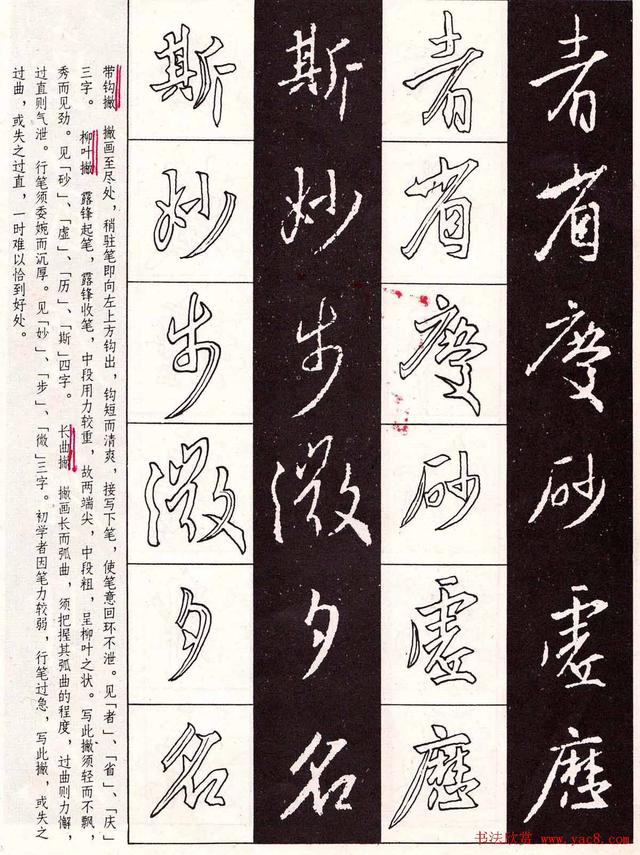 者省慶砂虛歷
者省慶砂虛歷
斯妙步微夕名
斯妙步微夕名
带钩撇 撇画至尽处，稍驻笔即向左上方钩出，钩短而清爽，接写下笔，使笔意回环不泄。见「者」、「省」、「庆」
三字。 柳叶撇 露锋起笔，露锋收笔，中段用力较重，故两端尖，中段粗，呈柳叶之状。写此撇须轻而不飘，
秀而见劲。见「砂」、「虚」、「历」、「斯」四字。 长曲撇 撇画长而弧曲，须把握其弧曲的程度，过曲则力懈，
过直则气泄。行笔须委婉而沉厚。见「妙」、「步」、「微」三字。初学者因笔力较弱，行笔过急，写此撇，或失之
过曲，或失之过直，一时难以恰到好处。
书法欣赏 www.yac8.com